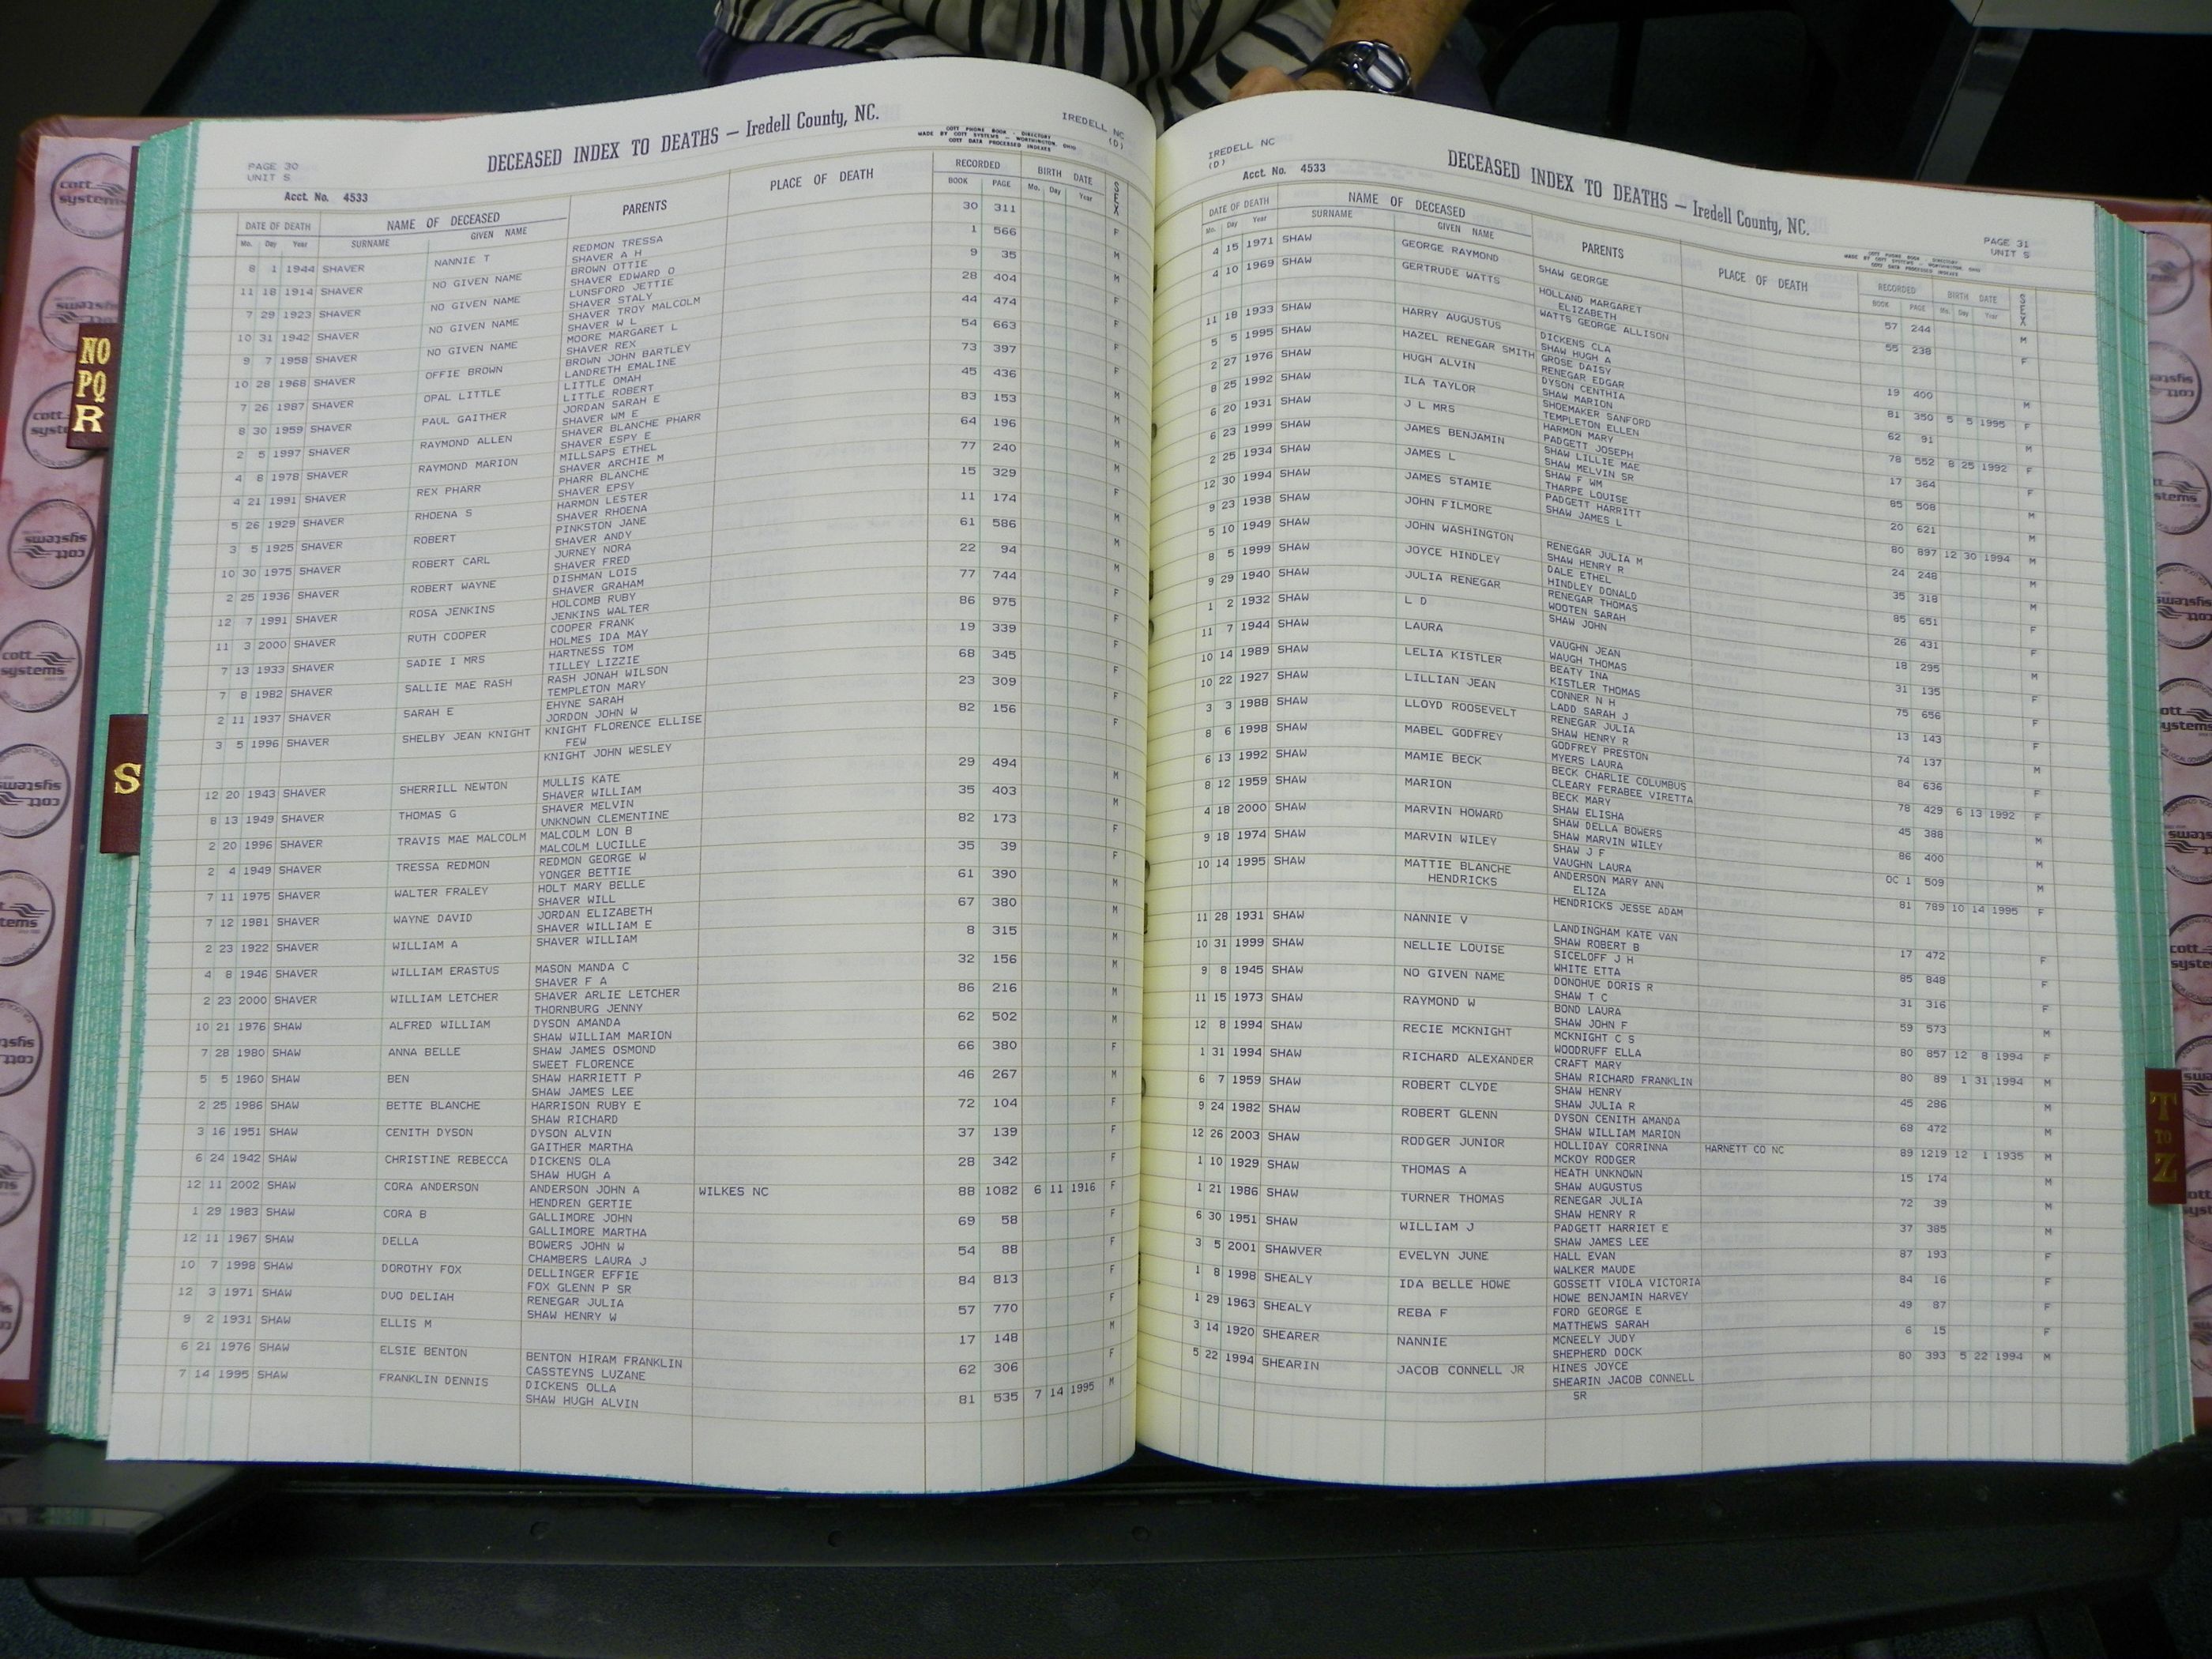 PAGE 30
UNIT S
DECEASED INDEX TO DEATHS — Iredell County, NC.
COTT PHONE BOOK - DIRECTORY
MADE BY COTT SYSTEMS — WORTHINGTON, OHIO
COTT DATA PROCESSED INDEXES
IREDELL NC
(D)
Acct. No. 4533
DATE OF DEATH NAME OF DECEASED PARENTS PLACE OF DEATH RECORDED BIRTH DATE SEX
Mo. Day Year SURNAME GIVEN NAME BOOK PAGE Mo. Day Year
8 1 1944 SHAVER NANNIE T REDMON TRESSA 30 311 F
SHAVER A H
11 18 1914 SHAVER NO GIVEN NAME BROWN OTTIE 1 566 M
SHAVER EDWARD O
7 29 1923 SHAVER NO GIVEN NAME LUNSFORD JETTIE 9 35 M
SHAVER STALY
10 31 1942 SHAVER NO GIVEN NAME SHAVER TROY MALCOLM 28 404 F
SHAVER W L
9 7 1958 SHAVER NO GIVEN NAME MOORE MARGARET L 44 474 F
SHAVER REX
10 28 1968 SHAVER OFFIE BROWN BROWN JOHN BARTLEY 54 663 F
LANDRETH EMALINE
7 26 1987 SHAVER OPAL LITTLE LITTLE OMAH 73 397 F
LITTLE ROBERT
8 30 1959 SHAVER PAUL GAITHER JORDAN SARAH E 45 436 M
SHAVER WM E
2 5 1997 SHAVER RAYMOND ALLEN SHAVER BLANCHE PHARR 83 153 M
SHAVER ESPY E
4 8 1978 SHAVER RAYMOND MARION MILLSAPS ETHEL 64 196 M
SHAVER ARCHIE M
4 21 1991 SHAVER REX PHARR PHARR BLANCHE 77 240 M
SHAVER EPSY
5 26 1929 SHAVER RHOENA S HARMON LESTER 15 329 F
SHAVER RHOENA
3 5 1925 SHAVER ROBERT PINKSTON JANE 11 174 M
SHAVER ANDY
10 30 1975 SHAVER ROBERT CARL JURNEY NORA 61 586 M
SHAVER FRED
2 25 1936 SHAVER ROBERT WAYNE DISHMAN LOIS 22 94 M
SHAVER GRAHAM
12 7 1991 SHAVER ROSA JENKINS HOLCOMB RUBY 77 744 F
JENKINS WALTER
11 3 2000 SHAVER RUTH COOPER COOPER FRANK 86 975 F
HOLMES IDA MAY
7 13 1933 SHAVER SADIE I MRS HARTNESS TOM 19 339 F
TILLEY LIZZIE
7 8 1982 SHAVER SALLIE MAE RASH RASH JONAH WILSON 68 345 F
TEMPLETON MARY
2 11 1937 SHAVER SARAH E EHYNE SARAH 23 309 F
JORDON JOHN W
3 5 1996 SHAVER SHELBY JEAN KNIGHT KNIGHT FLORENCE ELLISE 82 156 F
FEW
KNIGHT JOHN WESLEY
12 20 1943 SHAVER SHERRILL NEWTON MULLIS KATE 29 494 M
SHAVER WILLIAM
8 13 1949 SHAVER THOMAS G SHAVER MELVIN 35 403 M
UNKNOWN CLEMENTINE
2 20 1996 SHAVER TRAVIS MAE MALCOLM MALCOLM LON B 82 173 F
MALCOLM LUCILLE
2 4 1949 SHAVER TRESSA REDMON REDMON GEORGE W 35 39 F
YONGER BETTIE
7 11 1975 SHAVER WALTER FRALEY HOLT MARY BELLE 61 390 M
SHAVER WILL
7 12 1981 SHAVER WAYNE DAVID JORDAN ELIZABETH 67 380 M
SHAVER WILLIAM E
2 23 1922 SHAVER WILLIAM A SHAVER WILLIAM 8 315 M
4 8 1946 SHAVER WILLIAM ERASTUS MASON MANDA C 32 156 M
SHAVER F A
2 23 2000 SHAVER WILLIAM LETCHER SHAVER ARLIE LETCHER 86 216 M
THORNBURG JENNY
10 21 1976 SHAW ALFRED WILLIAM DYSON AMANDA 62 502 M
SHAW WILLIAM MARION
7 28 1980 SHAW ANNA BELLE SHAW JAMES OSMOND 66 380 F
SWEET FLORENCE
5 5 1960 SHAW BEN SHAW HARRIETT P 46 267 M
SHAW JAMES LEE
2 25 1986 SHAW BETTE BLANCHE HARRISON RUBY E 72 104 F
SHAW RICHARD
3 16 1951 SHAW CENITH DYSON DYSON ALVIN 37 139 F
GAITHER MARTHA
6 24 1942 SHAW CHRISTINE REBECCA DICKENS OLA 28 342 F
SHAW HUGH A
12 11 2002 SHAW CORA ANDERSON ANDERSON JOHN A WILKES NC 88 1082 6 11 1916 F
HENDREN GERTIE
1 29 1983 SHAW CORA B GALLIMORE JOHN 69 58 F
GALLIMORE MARTHA
12 11 1967 SHAW DELLA BOWERS JOHN W 54 88 F
CHAMBERS LAURA J
10 7 1998 SHAW DOROTHY FOX DELLINGER EFFIE 84 813 F
FOX GLENN P SR
12 3 1971 SHAW DUO DELIAH RENEGAR JULIA 57 770 F
SHAW HENRY W
9 2 1931 SHAW ELLIS M 17 148 M
6 21 1976 SHAW ELSIE BENTON BENTON HIRAM FRANKLIN 62 306 F
CASSTEYNS LUZANE
7 14 1995 SHAW FRANKLIN DENNIS DICKENS OLLA 81 535 7 14 1995 M
SHAW HUGH ALVIN
IREDELL NC
(D)
DECEASED INDEX TO DEATHS — Iredell County, NC.
PAGE 31
UNIT S
Acct. No. 4533
DATE OF DEATH NAME OF DECEASED PARENTS PLACE OF DEATH RECORDED BIRTH DATE SEX
Mo. Day Year SURNAME GIVEN NAME BOOK PAGE Mo. Day Year
4 15 1971 SHAW GEORGE RAYMOND SHAW GEORGE 57 244 M
4 10 1969 SHAW GERTRUDE WATTS HOLLAND MARGARET 55 238 F
ELIZABETH
WATTS GEORGE ALLISON
11 18 1933 SHAW HARRY AUGUSTUS DICKENS CLA 19 400 M
SHAW HUGH A
5 5 1995 SHAW HAZEL RENEGAR SMITH GROSE DAISY 81 350 5 5 1995 F
RENEGAR EDGAR
2 27 1976 SHAW HUGH ALVIN DYSON CENTHIA 62 91 M
SHAW MARION
8 25 1992 SHAW ILA TAYLOR SHOEMAKER SANFORD 78 552 8 25 1992 F
TEMPLETON ELLEN
6 20 1931 SHAW J L MRS HARMON MARY 17 364 F
PADGETT JOSEPH
6 23 1999 SHAW JAMES BENJAMIN SHAW LILLIE MAE 85 508 M
SHAW MELVIN SR
2 25 1934 SHAW JAMES L SHAW F WM 20 621 M
THARPE LOUISE
12 30 1994 SHAW JAMES STAMIE PADGETT HARRITT 80 897 12 30 1994 M
SHAW JAMES L
9 23 1938 SHAW JOHN FILMORE 24 248 M
5 10 1949 SHAW JOHN WASHINGTON RENEGAR JULIA M 35 318 M
SHAW HENRY R
8 5 1999 SHAW JOYCE HINDLEY DALE ETHEL 85 651 F
HINDLEY DONALD
9 29 1940 SHAW JULIA RENEGAR RENEGAR THOMAS 26 431 F
WOOTEN SARAH
1 2 1932 SHAW L D SHAW JOHN 18 295 M
11 7 1944 SHAW LAURA VAUGHN JEAN 31 135 F
WAUGH THOMAS
10 14 1989 SHAW LELIA KISTLER BEATY INA 75 656 F
KISTLER THOMAS
10 22 1927 SHAW LILLIAN JEAN CONNER N H 13 143 F
LADD SARAH J
3 3 1988 SHAW LLOYD ROOSEVELT RENEGAR JULIA 74 137 M
SHAW HENRY R
8 6 1998 SHAW MABEL GODFREY GODFREY PRESTON 84 636 F
MYERS LAURA
6 13 1992 SHAW MAMIE BECK BECK CHARLIE COLUMBUS 78 429 6 13 1992 F
CLEARY FERABEE VIRETTA
8 12 1959 SHAW MARION BECK MARY 45 388 M
SHAW ELISHA
4 18 2000 SHAW MARVIN HOWARD SHAW DELLA BOWERS 86 400 M
SHAW MARVIN WILEY
9 18 1974 SHAW MARVIN WILEY SHAW J F OC 1 509 M
VAUGHN LAURA
10 14 1995 SHAW MATTIE BLANCHE ANDERSON MARY ANN 81 789 10 14 1995 F
HENDRICKS ELIZA
HENDRICKS JESSE ADAM
11 28 1931 SHAW NANNIE V LANDINGHAM KATE VAN 17 472 F
SHAW ROBERT B
10 31 1999 SHAW NELLIE LOUISE SICELOFF J H 85 848 F
WHITE ETTA
9 8 1945 SHAW NO GIVEN NAME DONOHUE DORIS R 31 316 F
SHAW T C
11 15 1973 SHAW RAYMOND W BOND LAURA 59 573 M
SHAW JOHN F
12 8 1994 SHAW RECIE MCKNIGHT MCKNIGHT C S 80 857 12 8 1994 F
WOODRUFF ELLA
1 31 1994 SHAW RICHARD ALEXANDER CRAFT MARY 80 89 1 31 1994 M
SHAW RICHARD FRANKLIN
6 7 1959 SHAW ROBERT CLYDE SHAW HENRY 45 286 M
SHAW JULIA R
9 24 1982 SHAW ROBERT GLENN DYSON CENITH AMANDA 68 472 M
SHAW WILLIAM MARION
12 26 2003 SHAW RODGER JUNIOR HOLLIDAY CORRINNA HARNETT CO NC 89 1219 12 1 1935 M
MCKOY RODGER
1 10 1929 SHAW THOMAS A HEATH UNKNOWN 15 174 M
SHAW AUGUSTUS
1 21 1986 SHAW TURNER THOMAS RENEGAR JULIA 72 39 M
SHAW HENRY R
6 30 1951 SHAW WILLIAM J PADGETT HARRIET E 37 385 M
SHAW JAMES LEE
3 5 2001 SHAWVER EVELYN JUNE HALL EVAN 87 193 F
WALKER MAUDE
1 8 1998 SHEALY IDA BELLE HOWE GOSSETT VIOLA VICTORIA 84 16 F
HOWE BENJAMIN HARVEY
1 29 1963 SHEALY REBA F FORD GEORGE E 49 87 F
MATTHEWS SARAH
3 14 1920 SHEARER NANNIE MCNEELY JUDY 6 15 F
SHEPHERD DOCK
5 22 1994 SHEARIN JACOB CONNELL JR HINES JOYCE 80 393 5 22 1994 M
SHEARIN JACOB CONNELL
SR
NO
PQ
R
S
T
TO
Z
cott
systems